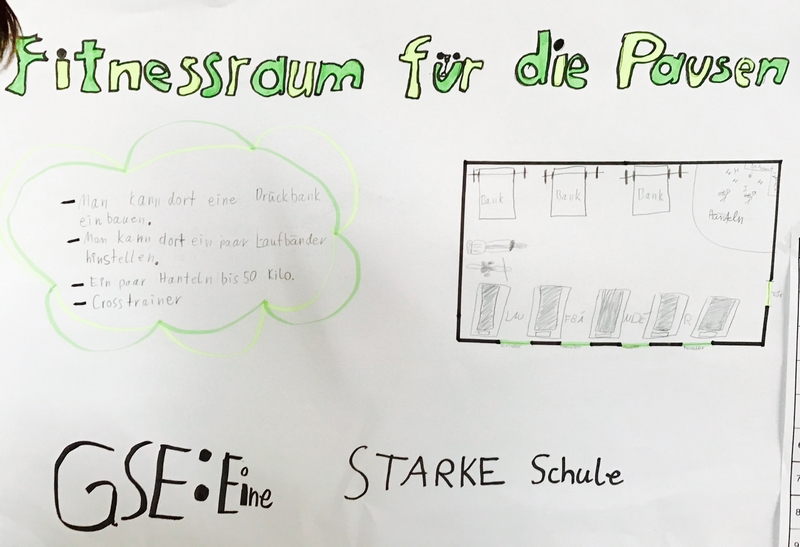 Fitnessraum für die Pausen
- Man kann dort eine Drückbank
einbauen.
- Man kann dort ein paar Laufbänder
hinstellen.
- Ein paar Hanteln bis 50 Kilo.
- Crosstrainer
Bank Bank Bank
Hanteln
GSE: Eine STARKE Schule